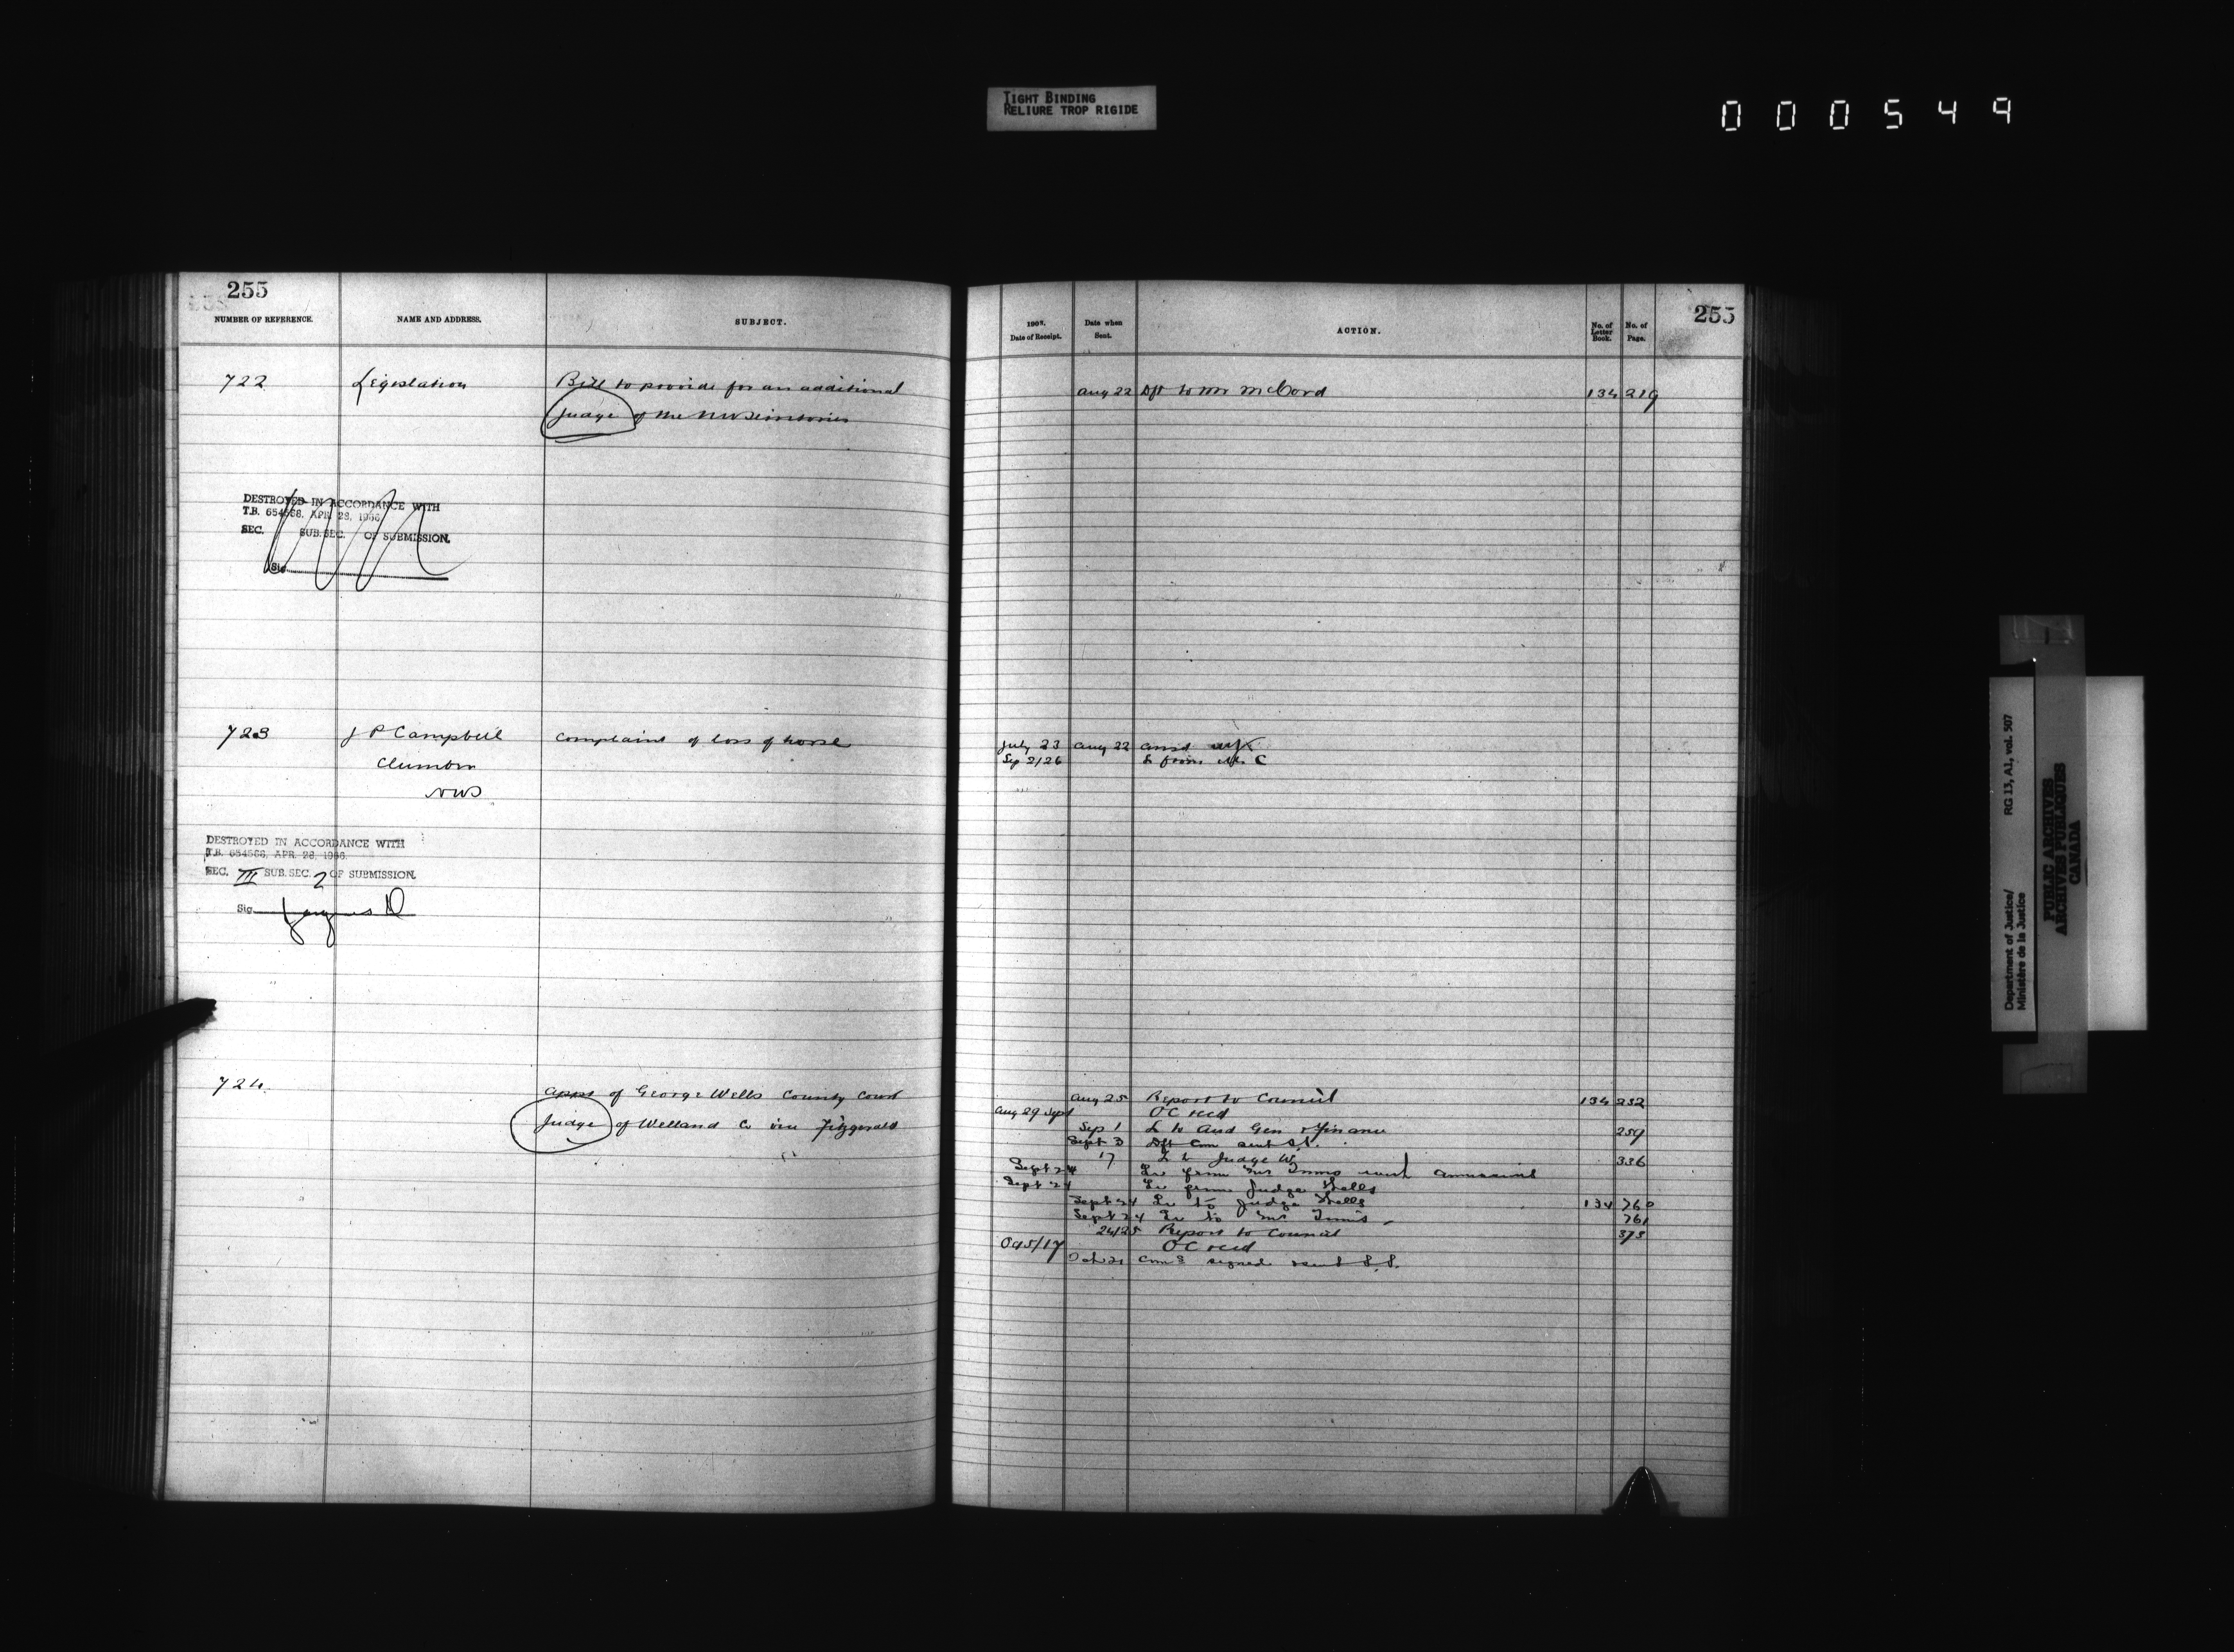 TIGHT BINDING
RELIURE TROP RIGIDE
000549
255
NUMBER OF REFERENCE.
NAME AND ADDRESS.
SUBJECT.
722
Legislation
Bill to provide for an additional
Judge of the NW Territories
DESTROYED IN ACCORDANCE WITH
T.B. 654588, APR. 28, 1966
SEC. SUB. SEC. OF SUBMISSION.
Sig.
723
J P Campbell
NWT
Complaint of loss of horse
DESTROYED IN ACCORDANCE WITH
T.B. 654588, APR. 28, 1966.
SEC. III SUB. SEC. 2 OF SUBMISSION.
Sig.
724
Appt of George Wells County Court
Judge of Welland Co vice Fitzgerald
255
1902.
Date of Receipt.
Date when
Sent.
ACTION.
No. of
Letter
Book.
No. of
Page.
Aug 22 Dft to Mr McCord 134 219
July 23 Aug 22
Sep 2/26 L from Mr C
Aug 25 Report to Council 134 232
Aug 29 Sept OC recd
Sep 1 L to Aud Gen & Finance 259
Sept 3 Dft Com sent S.S.
17 L to Judge W. 336
Sept 24 Lr from Mr
Sept 24 Lr from Judge Wells
Sept 24 Lr to Judge Wells 134 760
Sept 24 Lr to Mr 761
24/25 Report to Council 373
OC recd
Oct 21 Comn signed & sent S.S.
Department of Justice/
Ministère de la Justice
RG 13, A1, vol. 507
PUBLIC ARCHIVES
ARCHIVES PUBLIQUES
CANADA